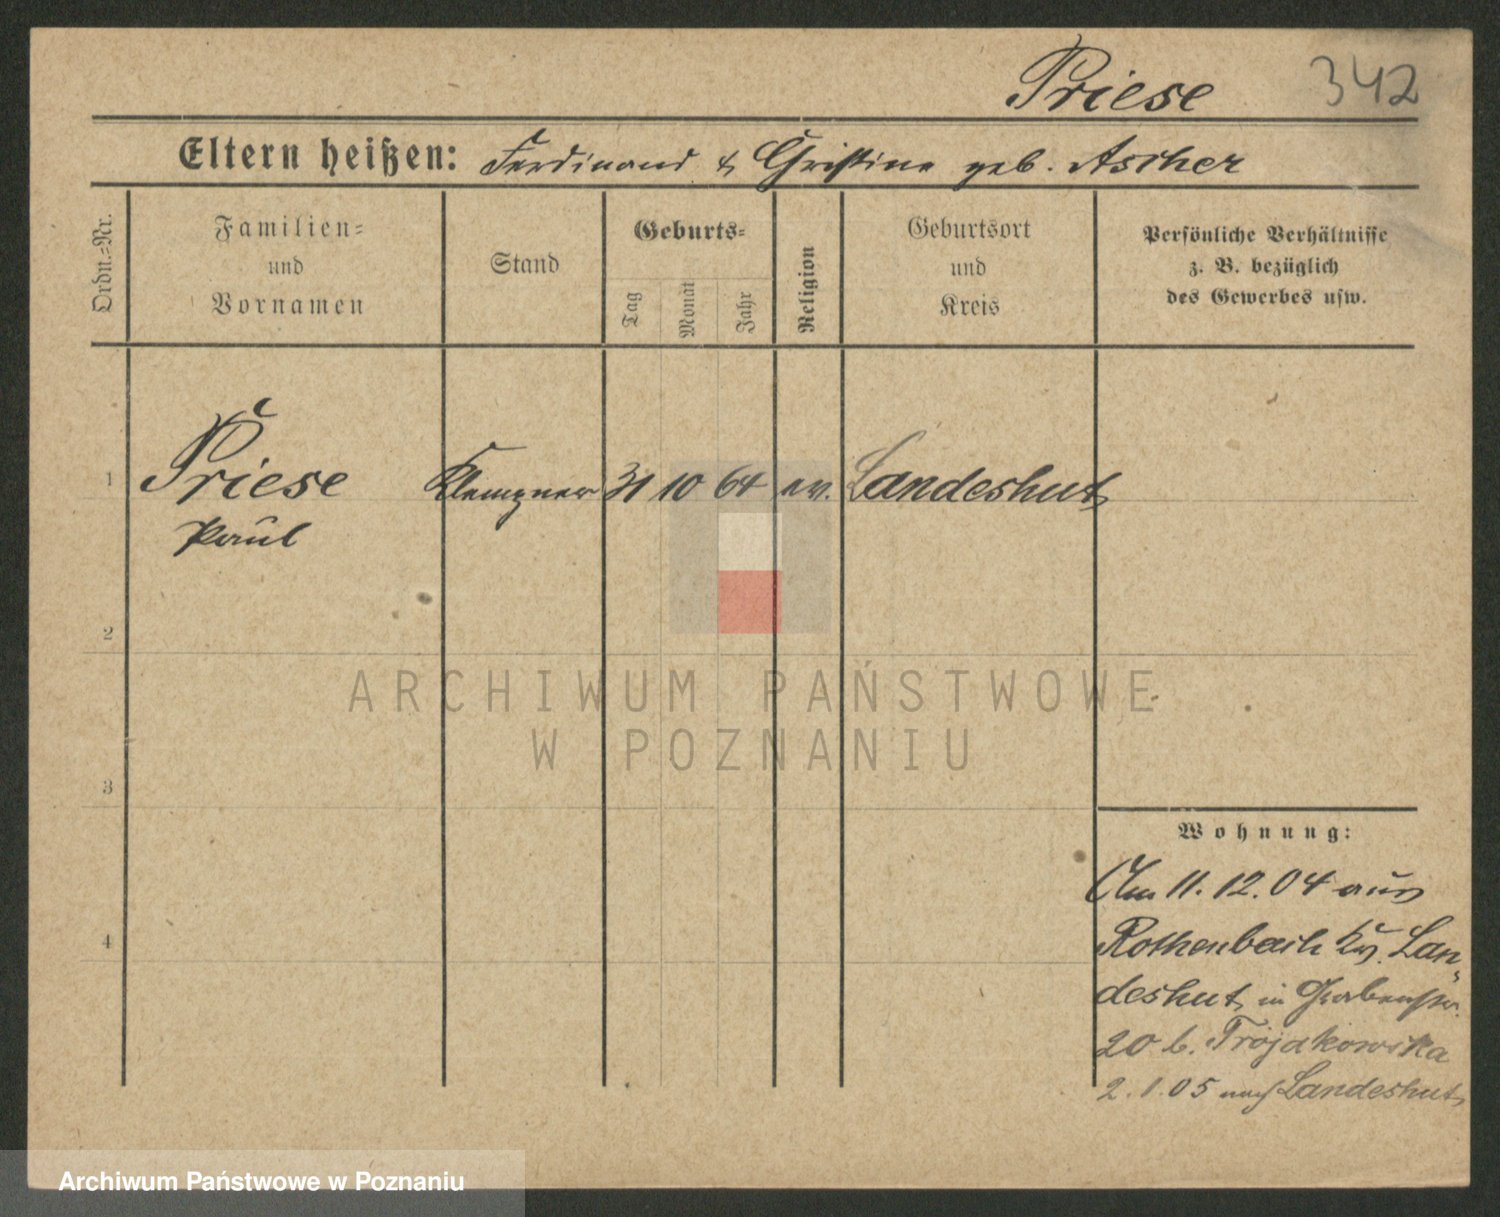 Priese 342
Eltern heißen: Ferdinand & Christine geb. Ascher
Ordn.-Nr.
Familien-
und
Vornamen
Stand
Geburts-
Tag
Monat
Jahr
Religion
Geburtsort
und
Kreis
Persönliche Verhältnisse
z. B. bezüglich
des Gewerbes usw.
1 Priese Klempner 31 10 64 ev. Landeshut
Paul
2
ARCHIWUM PAŃSTWOWE
W POZNANIU
3
Wohnung:
Am 11.12.04 aus
4 Rothenbach Kr. Lan-
deshut in Grabenstr.
20 b. Trojakowska
2.1.05 nach Landeshut
Archiwum Państwowe w Poznaniu